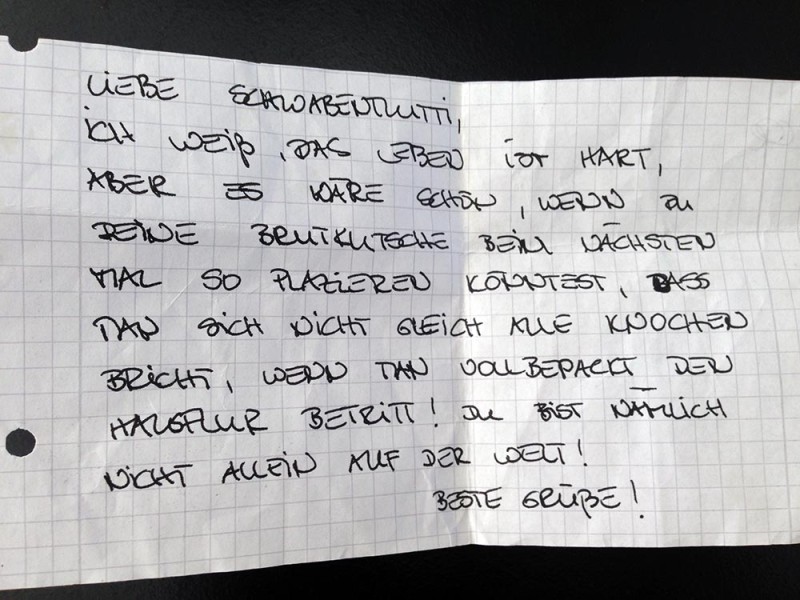 LIEBE SCHWABENMUTTI,
ICH WEIß, DAS LEBEN IST HART,
ABER ES WÄRE SCHÖN, WENN DU
DEINE BRUTKUTSCHE BEIM NÄCHSTEN
MAL SO PLAZIEREN KÖNNTEST, DASS
MAN SICH NICHT GLEICH ALLE KNOCHEN
BRICHT, WENN MAN VOLLBEPACKT DEN
HAUSFLUR BETRITT! DU BIST NÄMLICH
NICHT ALLEIN AUF DER WELT!
BESTE GRÜßE!